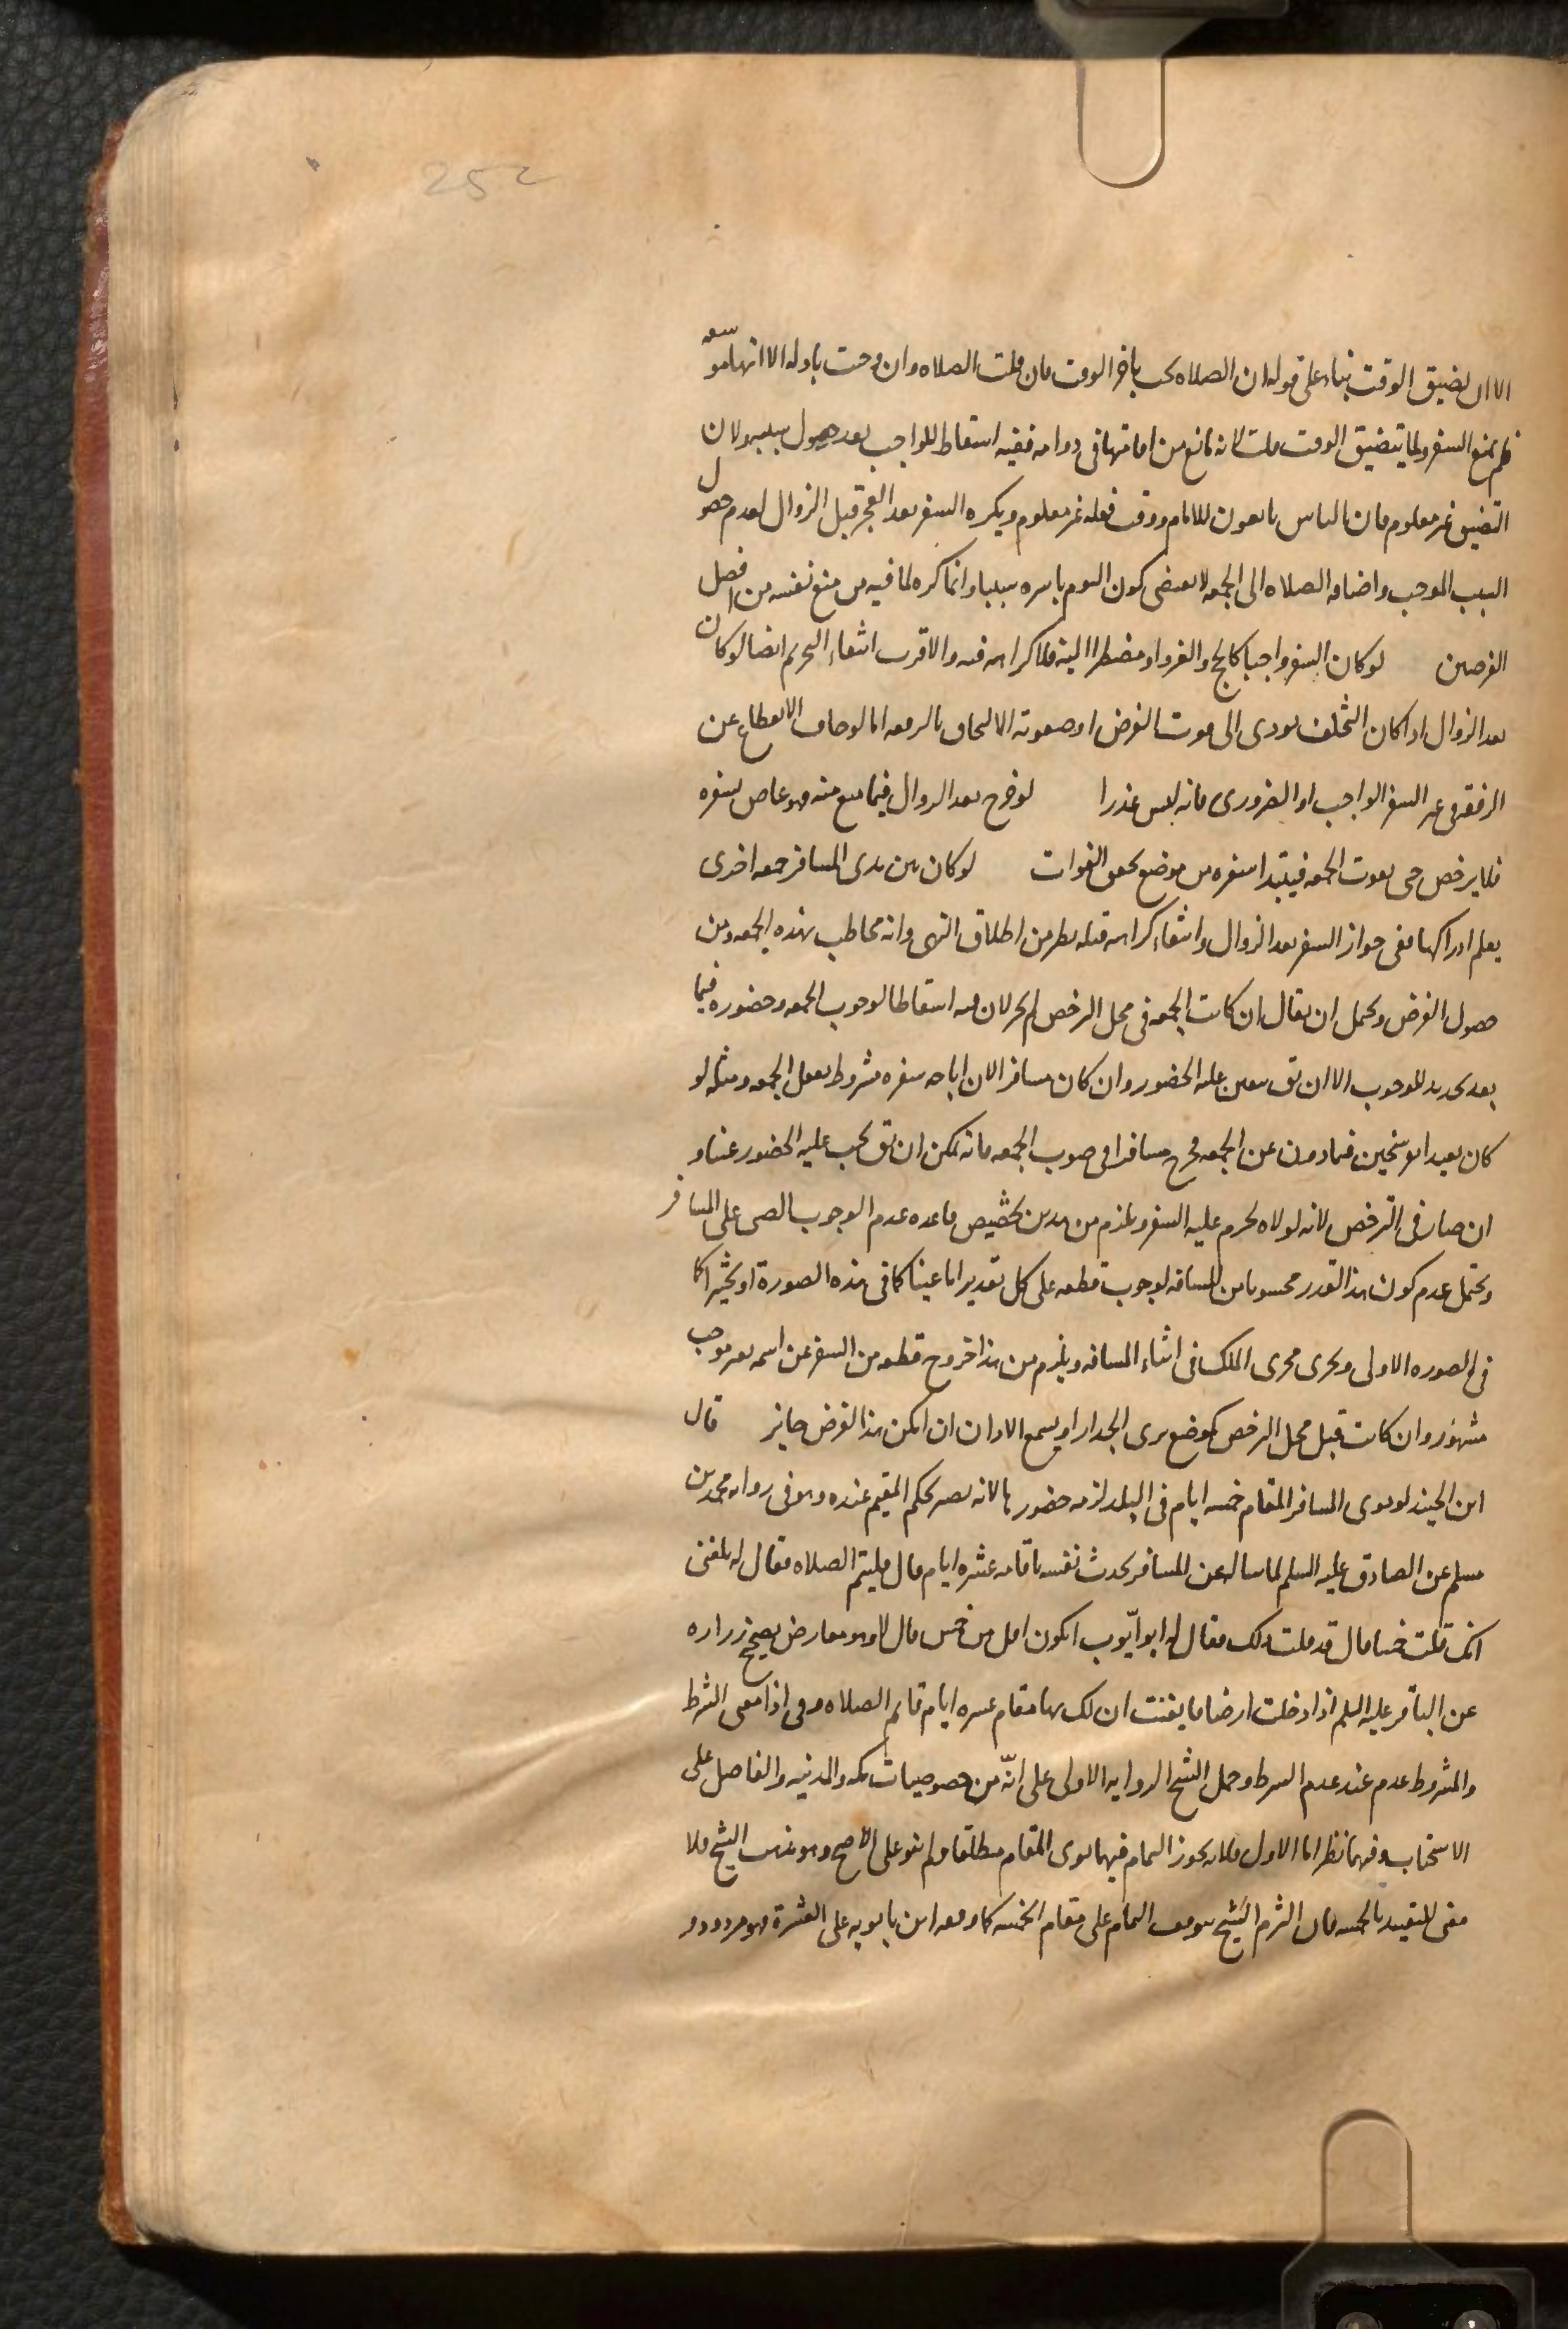 252
الا ان يضيق الوقت بناء على قوله ان الصلاه تجب باخر الوقت فان قلت الصلاه وان وجبت باوله الا انها موسعه
فلم يمنع السفر ولما يتضيق الوقت قلت لانه مانع من اقامتها في دوامه ففيه اسقاط للواجب بعد حصول سببه ولان
التضيق غير معلوم فان الناس تابعون للامام ووقت فعله غير معلوم ويكره السفر بعد الفجر قبل الزوال لعدم حصول
السبب الموجب واضافه الصلاه الى الجمعه لا يقتضى كون اليوم باسره سببا وانما كره لما فيه من منع نفسه من افضل
الفرضين لو كان السفر واجبا كالحج والغزو او مضطرا اليه فلا كراهه فيه والاقرب انتفاء التحريم ايضا لو كان
بعد الزوال اذا كان التخلف يودى الى فوت الغرض او صعوبه الالتحاق بالرفقه اما لو خاف الانقطاع عن
الرفقه فى غير السفر الواجب او الضرورى فانه ليس عذرا لو خرج بعد الزوال فيما يمنع منه فهو عاص بسفره
فلا يرخص حتى يفوت الجمعه فيبتدا سفره من موضع تحقق الفوات لو كان بين يدى المسافر جمعه اخرى
يعلم ادراكها ففى جواز السفر بعد الزوال وانتفاء كراهه قبله نظر من اطلاق النهى وانه مخاطب بهذه الجمعه ومن
حصول الغرض ويحتمل ان يقال ان كانت الجمعه فى محل الترخص لم يجز لان فيه اسقاطا لوجوب الجمعه وحضوره فيما
بعد تجديد للوجوب الا ان يق يتعين عليه الحضور وان كان مسافرا لان اباحه سفره مشروط بفعل الجمعه ومثله لو
كان بعيدا بفرسخين فما دون عن الجمعه فخرج مسافرا فى صوب الجمعه فانه يمكن ان يق يجب عليه الحضور عينا و
ان صار فى الترخص لانه لولاه لحرم عليه السفر ويلزم من هذين تخصيص قاعده عدم الوجوب العينى على المسافر
ويحتمل عدم كون هذا القدر محسوبا من المسافه لوجوب قطعه على كل تقدير اما عينا كما فى هذه الصورة او تخييرا كما
فى الصوره الاولى ويجرى مجرى الملك فى اثناء المسافه ويلزم من هذا خروج قطعه من السفر عن اسمه بغير موجب
مشهور وان كانت قبل محل الترخص كموضع يرى الجدار او يسمع الاذان ان امكن هذا الغرض جايز قال
ابن الجنيد لو نوى المسافر المقام خمسه ايام فى البلد لزمه حضورها لانه يصير بحكم المقيم عنده وهو فى روايه محمد بن
مسلم عن الصادق عليه السلم لما ساله عن المسافر يحدث نفسه باقامه عشره ايام قال فليتم الصلاه فقال له بلغنى
انك قلت خمسا قال قد قلت ذلك فقال له ابو ايّوب ايكون اقل من خمس قال لا وهو معارض بصحيح زراره
عن الباقر عليه السلم اذا دخلت ارضا فايقنت ان لك بها مقام عشره ايام فاتم الصلاه وفى اذا معنى الشرط
والمشروط عدم عند عدم الشرط وحمل الشيخ الروايه الاولى على انّه من خصوصيات مكه والمدينه والفاضل على
الاستحباب وفيهما نظر اما الاول فلانه يجوز التمام فيهما نوى المقام مطلقا ولم ينو على الاصح وهو مذهب الشيخ فلا
معنى للتقييد بالخمسه فان التزم الشيخ بوقف التمام على مقام الخمسه كما وقفه ابن بابويه على العشرة فهو مردود و